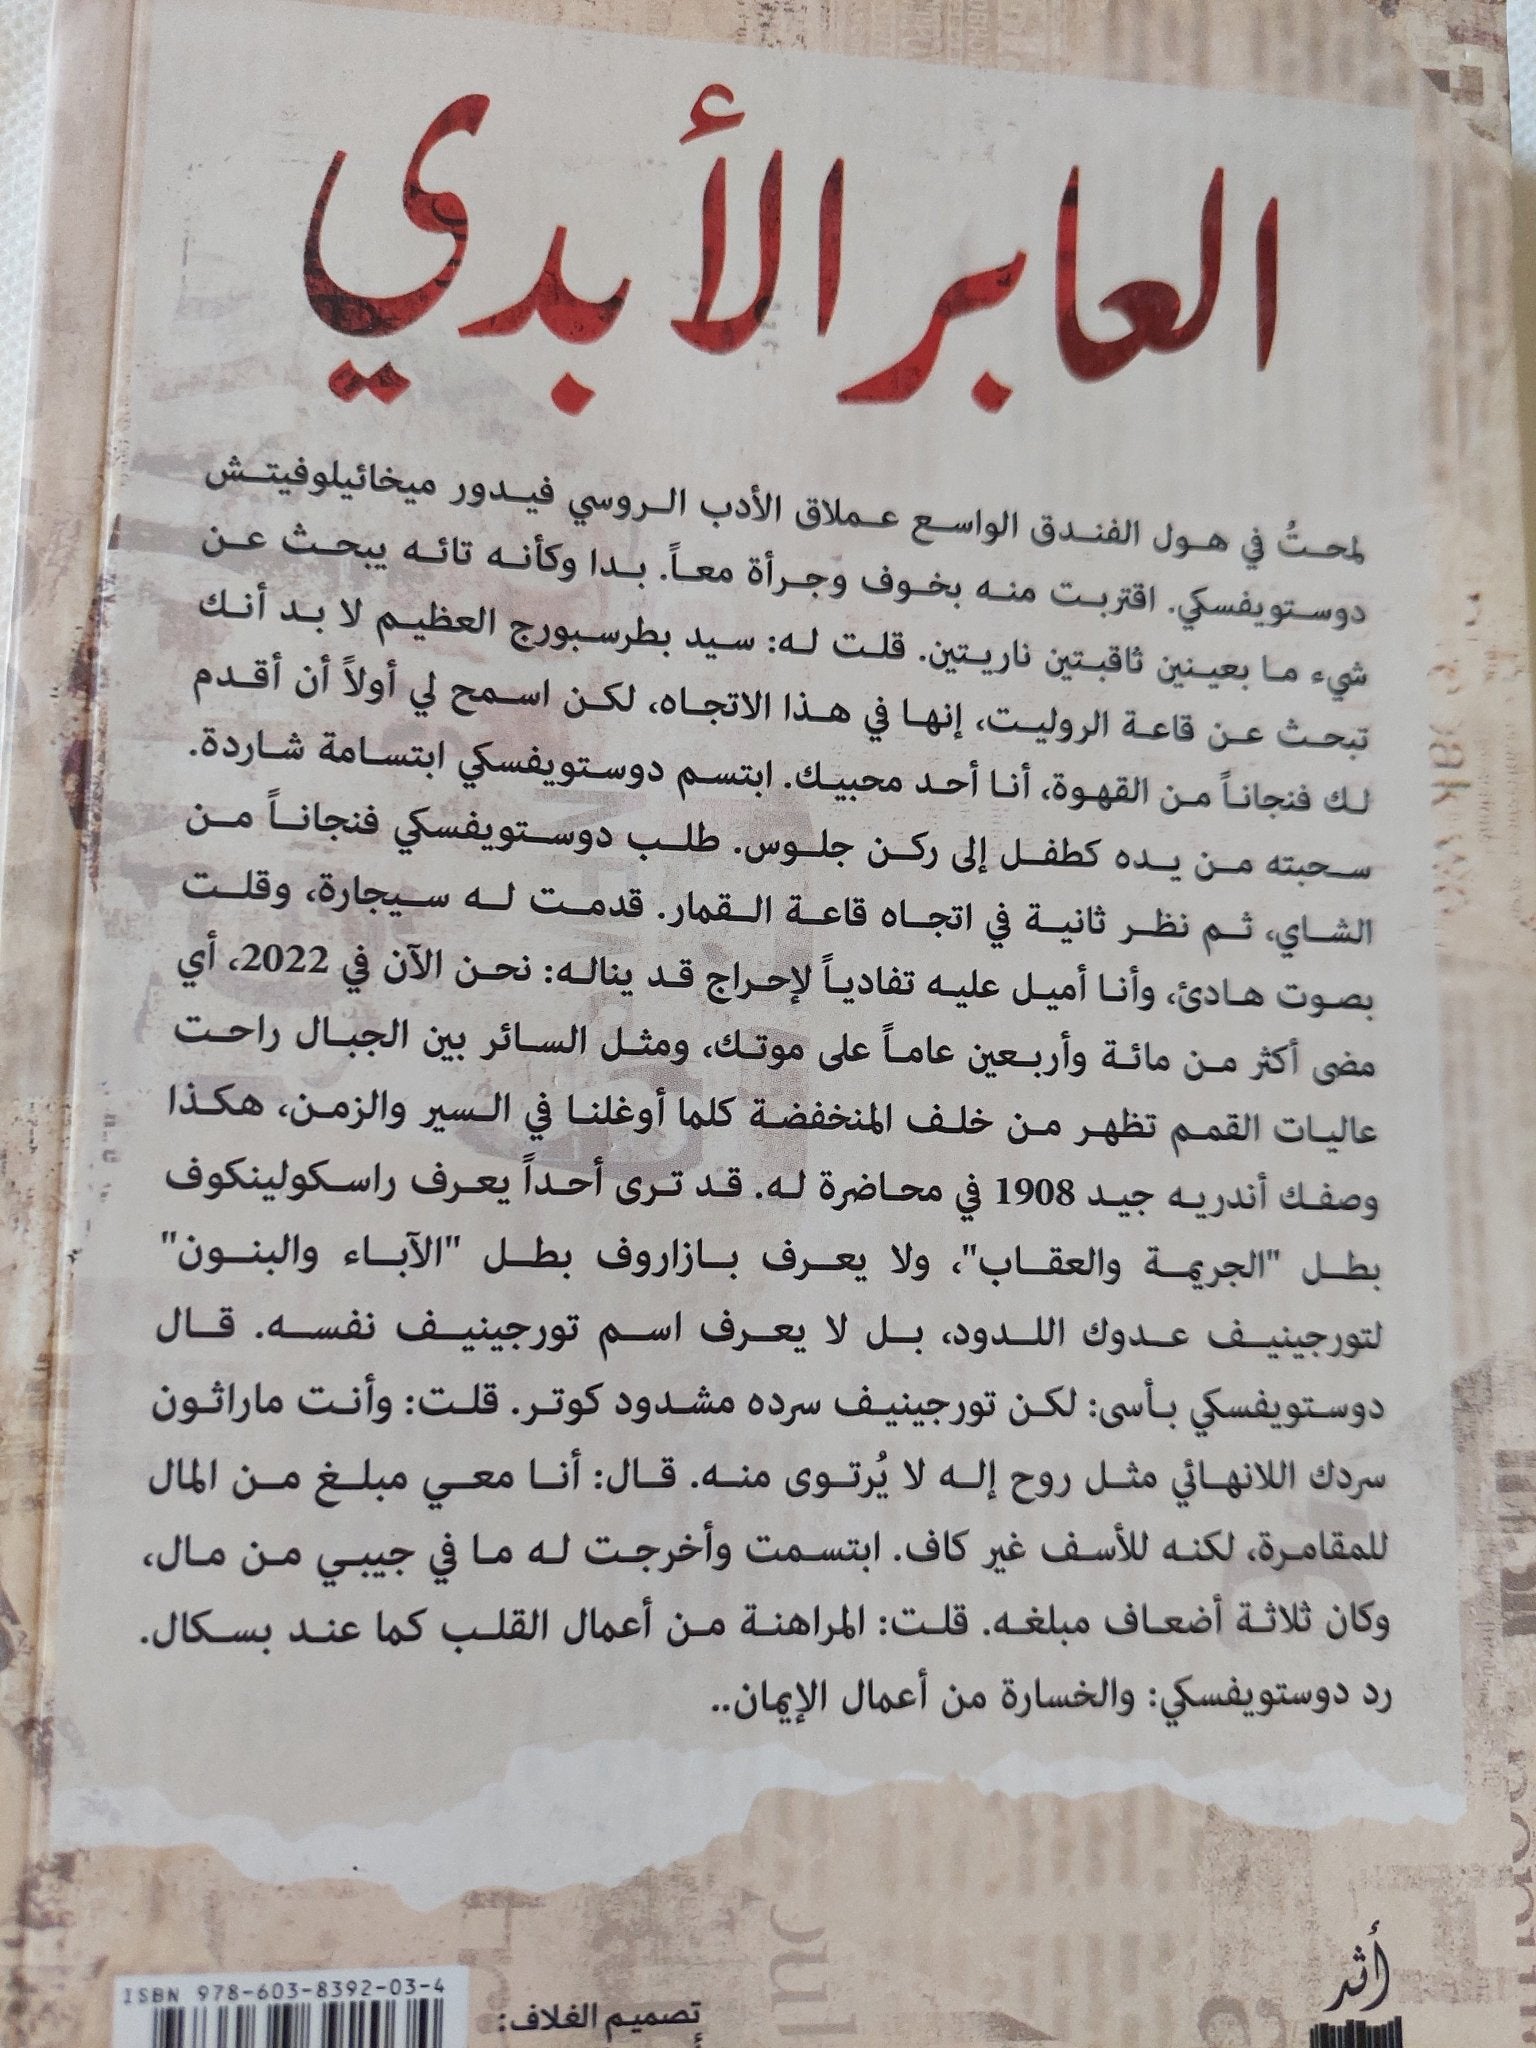 العابر الأبدي
لمحتُ في هول الفندق الواسع عملاق الأدب الروسي فيدور ميخائيلوفيتش
دوستويفسكي. اقتربت منه بخوف وجرأة معاً. بدا وكأنه تائه يبحث عن
شيء ما بعينين ثاقبتين ناريتين. قلت له: سيد بطرسبورج العظيم لا بد أنك
تبحث عن قاعة الروليت، إنها في هذا الاتجاه، لكن اسمح لي أولاً أن أقدم
لك فنجاناً من القهوة، أنا أحد محبيك. ابتسم دوستويفسكي ابتسامة شاردة.
سحبته من يده كطفل إلى ركن جلوس. طلب دوستويفسكي فنجاناً من
الشاي، ثم نظر ثانية في اتجاه قاعة القمار. قدمت له سيجارة، وقلت
بصوت هادئ، وأنا أميل عليه تفادياً لإحراج قد يناله: نحن الآن في 2022، أي
مضى أكثر من مائة وأربعين عاماً على موتك، ومثل السائر بين الجبال راحت
عاليات القمم تظهر من خلف المنخفضة كلما أوغلنا في السير والزمن، هكذا
وصفك أندريه جيد 1908 في محاضرة له. قد ترى أحداً يعرف راسكولينكوف
بطل "الجريمة والعقاب"، ولا يعرف بازاروف بطل "الآباء والبنون"
لتورجينيف عدوك اللدود، بل لا يعرف اسم تورجينيف نفسه. قال
دوستويفسكي بأسى: لكن تورجينيف سرده مشدود كوتر. قلت: وأنت ماراثون
سردك اللانهائي مثل روح إله لا يُرتوى منه. قال: أنا معي مبلغ من المال
للمقامرة، لكنه للأسف غير كاف. ابتسمت وأخرجت له ما في جيبي من مال،
وكان ثلاثة أضعاف مبلغه. قلت: المراهنة من أعمال القلب كما عند بسكال.
رد دوستويفسكي: والخسارة من أعمال الإيمان..
أثر
ISBN 978-603-8392-03-4
تصميم الغلاف: